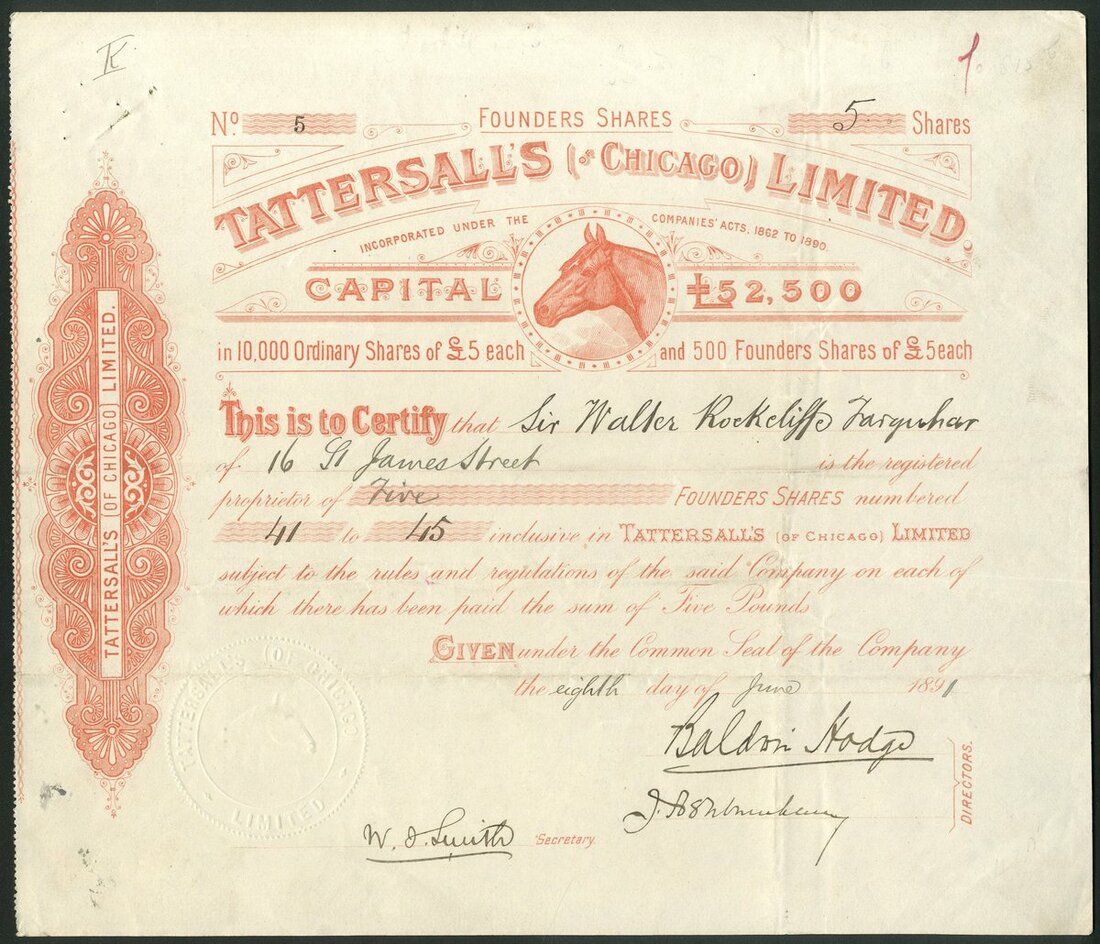 K
Nº 5 FOUNDERS SHARES 5 Shares
TATTERSALL'S (OF CHICAGO) LIMITED.
INCORPORATED UNDER THE COMPANIES' ACTS, 1862 TO 1890.
CAPITAL £52,500
in 10,000 Ordinary Shares of £5 each and 500 Founders Shares of £5 each
This is to Certify that Sir Walter Rockcliffe Farquhar
of 16 St James Street is the registered
proprietor of Five FOUNDERS SHARES numbered
41 to 45 inclusive in TATTERSALL'S (OF CHICAGO) LIMITED
subject to the rules and regulations of the said Company on each of
which there has been paid the sum of Five Pounds
GIVEN under the Common Seal of the Company
the eighth day of June 1891
Baldwin Hodge
DIRECTORS.
W. J. Smith Secretary.
TATTERSALL'S (OF CHICAGO) LIMITED.
TATTERSALLS (OF CHICAGO) LIMITED